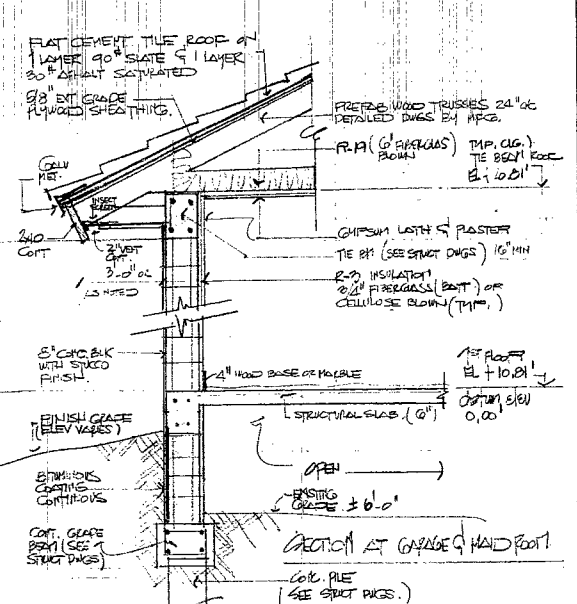 FLAT CEMENT TILE ROOF ON
1 LAYER 90# SLATE & 1 LAYER
30# ASHALT SATURATED
5/8" EXT GRADE
PLYWOOD SHEATHING.
PREFAB WOOD TRUSSES 24" OC
DETAILED DWGS BY MFCG.
R-19 (6" FIBERGLAS)
BLOWN
TYP. CLG.
TIE BEAM ROOF
EL + 10.81'
GALV
MET.
INSECT
2X10
CONT
2" VENT
CONT.
3'-0" OC
AS NOTED
GYPSUM LATH & PLASTER
TIE BM (SEE STRUCT DWGS) 16" MIN
R-3 INSULATION
3/4" FIBERGLASS (BATT) OR
CELLULOSE BLOWN (TYP.)
8" CONC. BLK
WITH STUCCO
FINISH.
4" WOOD BASE OR MARBLE
1ST FLOOR
EL + 10.81'
DATUM ELEV
0.00'
STRUCTURAL SLAB. (6")
FINISH GRADE
(ELEV VARIES)
OPEN
BITUMINOUS
COATING
CONTINUOUS
EXISTING
GRADE ± 6'-0"
CONT. GRADE
BEAM (SEE
STRUCT DWGS)
SECTION AT GARAGE & MAID ROOM
CONC. PILE
(SEE STRUCT DWGS.)